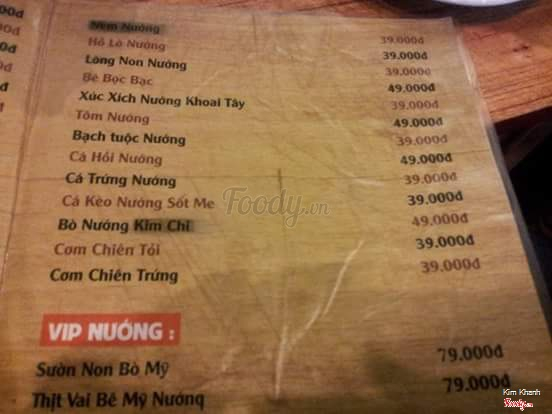 Nem Nướng 39.000đ
Hồ Lô Nướng 39.000đ
Lòng Non Nướng 39.000đ
Bê Bọc Bạc 49.000đ
Xúc Xích Nướng Khoai Tây 39.000đ
Tôm Nướng 49.000đ
Bạch tuộc Nướng 39.000đ
Cá Hồi Nướng 49.000đ
Cá Trứng Nướng 39.000đ
Cá Kèo Nướng Sốt Me 39.000đ
Bò Nướng Kim Chi 49.000đ
Cơm Chiên Tỏi 39.000đ
Cơm Chiên Trứng 39.000đ
Foody.vn
VIP NƯỚNG :
Sườn Non Bò Mỹ 79.000đ
Thịt Vai Bê Mỹ Nướng 79.000đ
Kim Khanh
Foody.vn